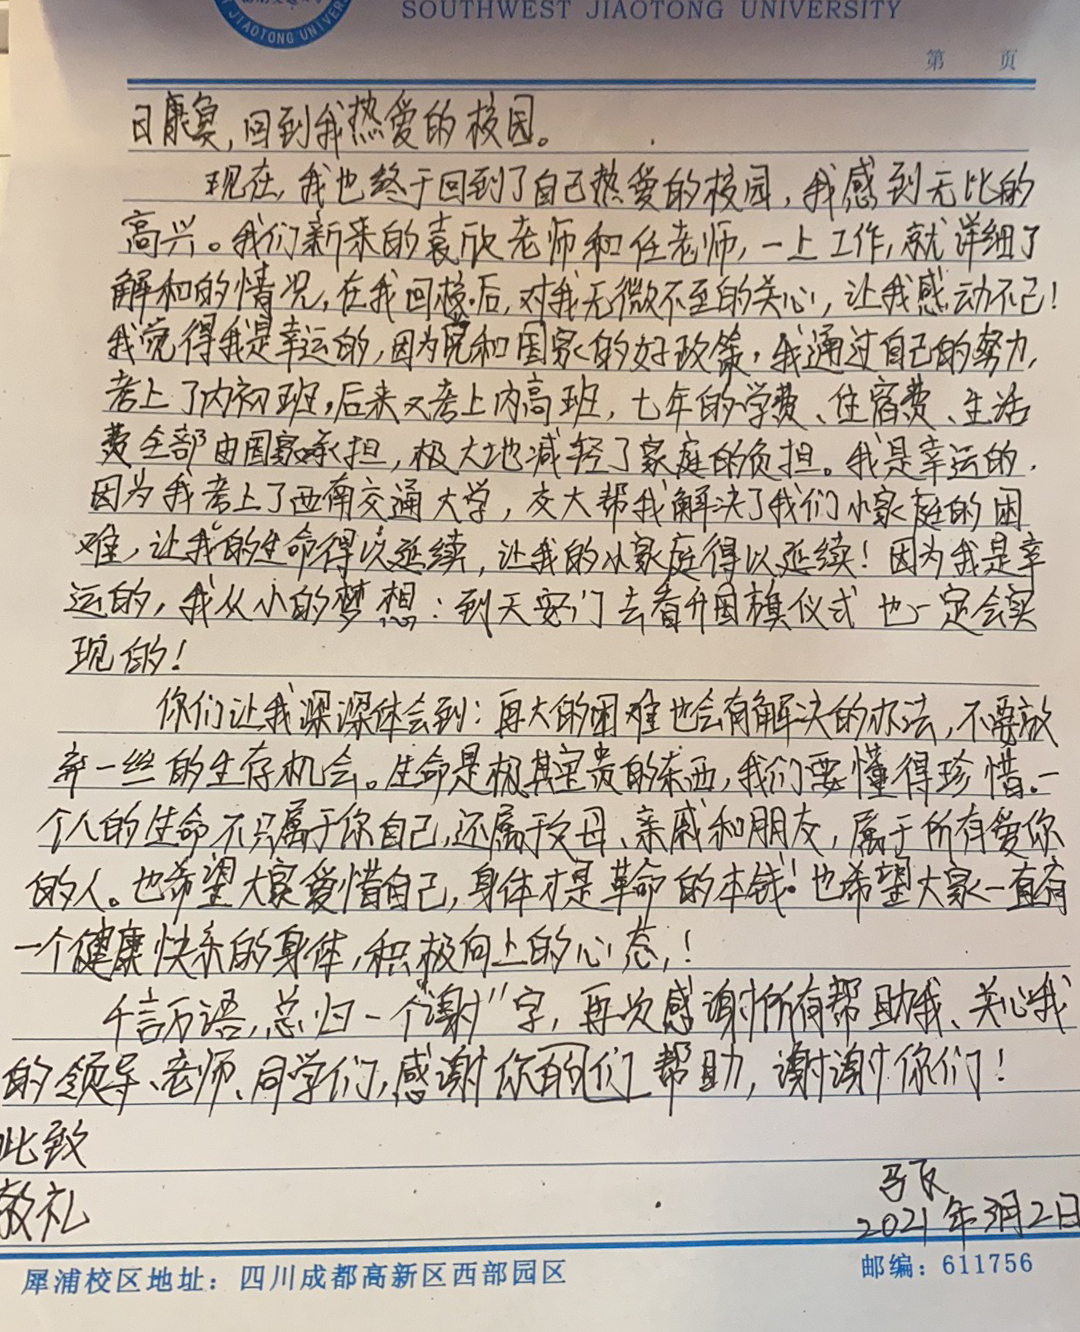 JIAOTONG UNIVER
SOUTHWEST JIAOTONG UNIVERSITY
第 页
日康复,回到我热爱的校园。
现在,我也终于回到了自己热爱的校园,我感到无比的
高兴。我们新来的袁欣老师和任老师,一上工作,就详细了
解和的情况,在我回校后,对我无微不至的关心,让我感动不已!
我觉得我是幸运的,因为党和国家的好政策,我通过自己的努力,
考上了内初班,后来又考上内高班,七年的学费、住宿费、生活
费全部由国家承担,极大地减轻了家庭的负担。我是幸运的,
因为我考上了西南交通大学,交大帮我解决了我们小家庭的困
难,让我的生命得以延续,让我的小家庭得以延续!因为我是幸
运的,我从小的梦想:到天安门去看升国旗仪式也一定会实
现的!
你们让我深深体会到:再大的困难也会有解决的办法,不要放
弃一丝的生存机会。生命是极其宝贵的东西,我们要懂得珍惜。一
个人的生命不只属于你自己,还属于父母、亲戚和朋友,属于所有爱你
的人。也希望大家爱惜自己,身体才是革命的本钱!也希望大家一直有
一个健康快乐的身体,积极向上的心态,!
千言万语,总归一个“谢”字,再次感谢所有帮助我、关心我
的领导、老师、同学们,感谢你的们帮助,谢谢你们!
此致
敬礼
2021年3月2日
犀浦校区地址:四川成都高新区西部园区
邮编:611756